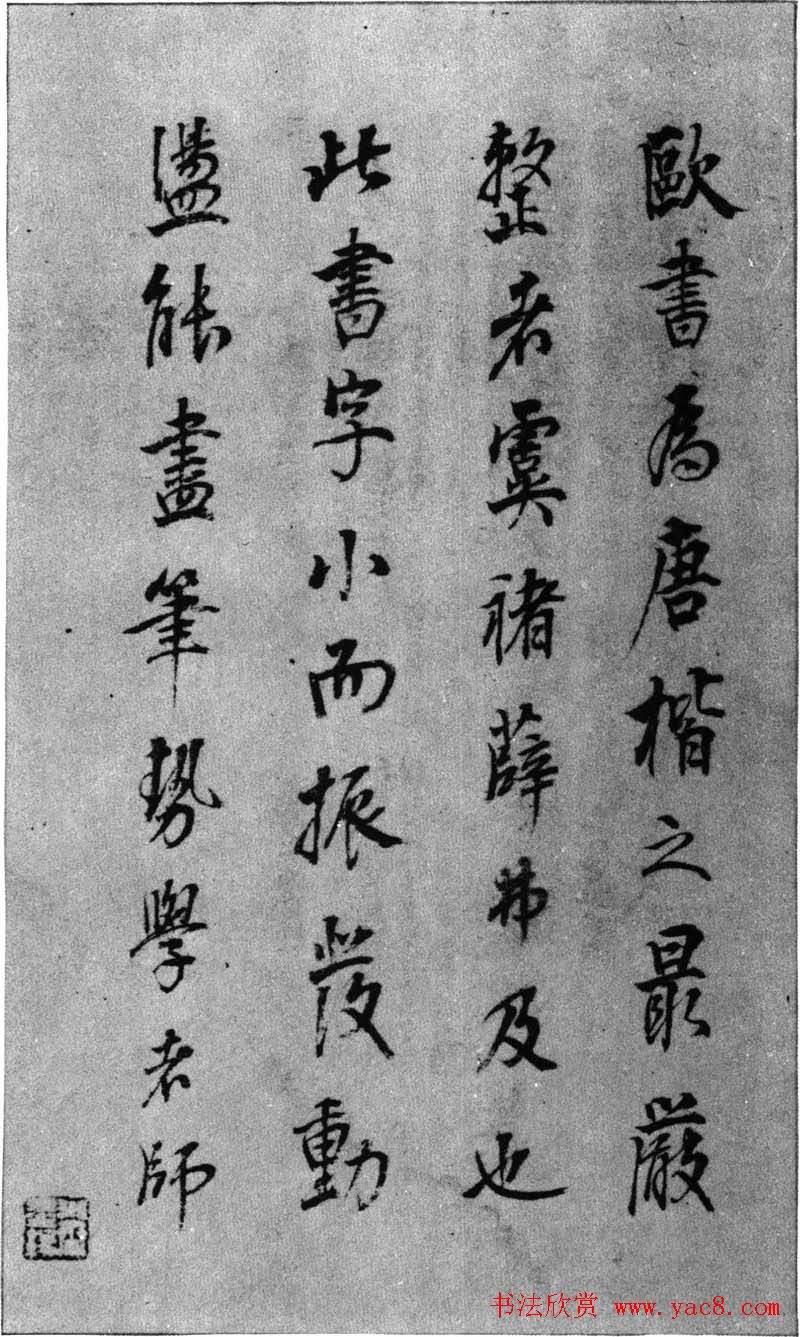 歐書爲唐楷之最嚴
整者虞褚薛弗及也
此書字小而振發動
盪能盡筆勢學者師
书法欣赏 www.yac8.com